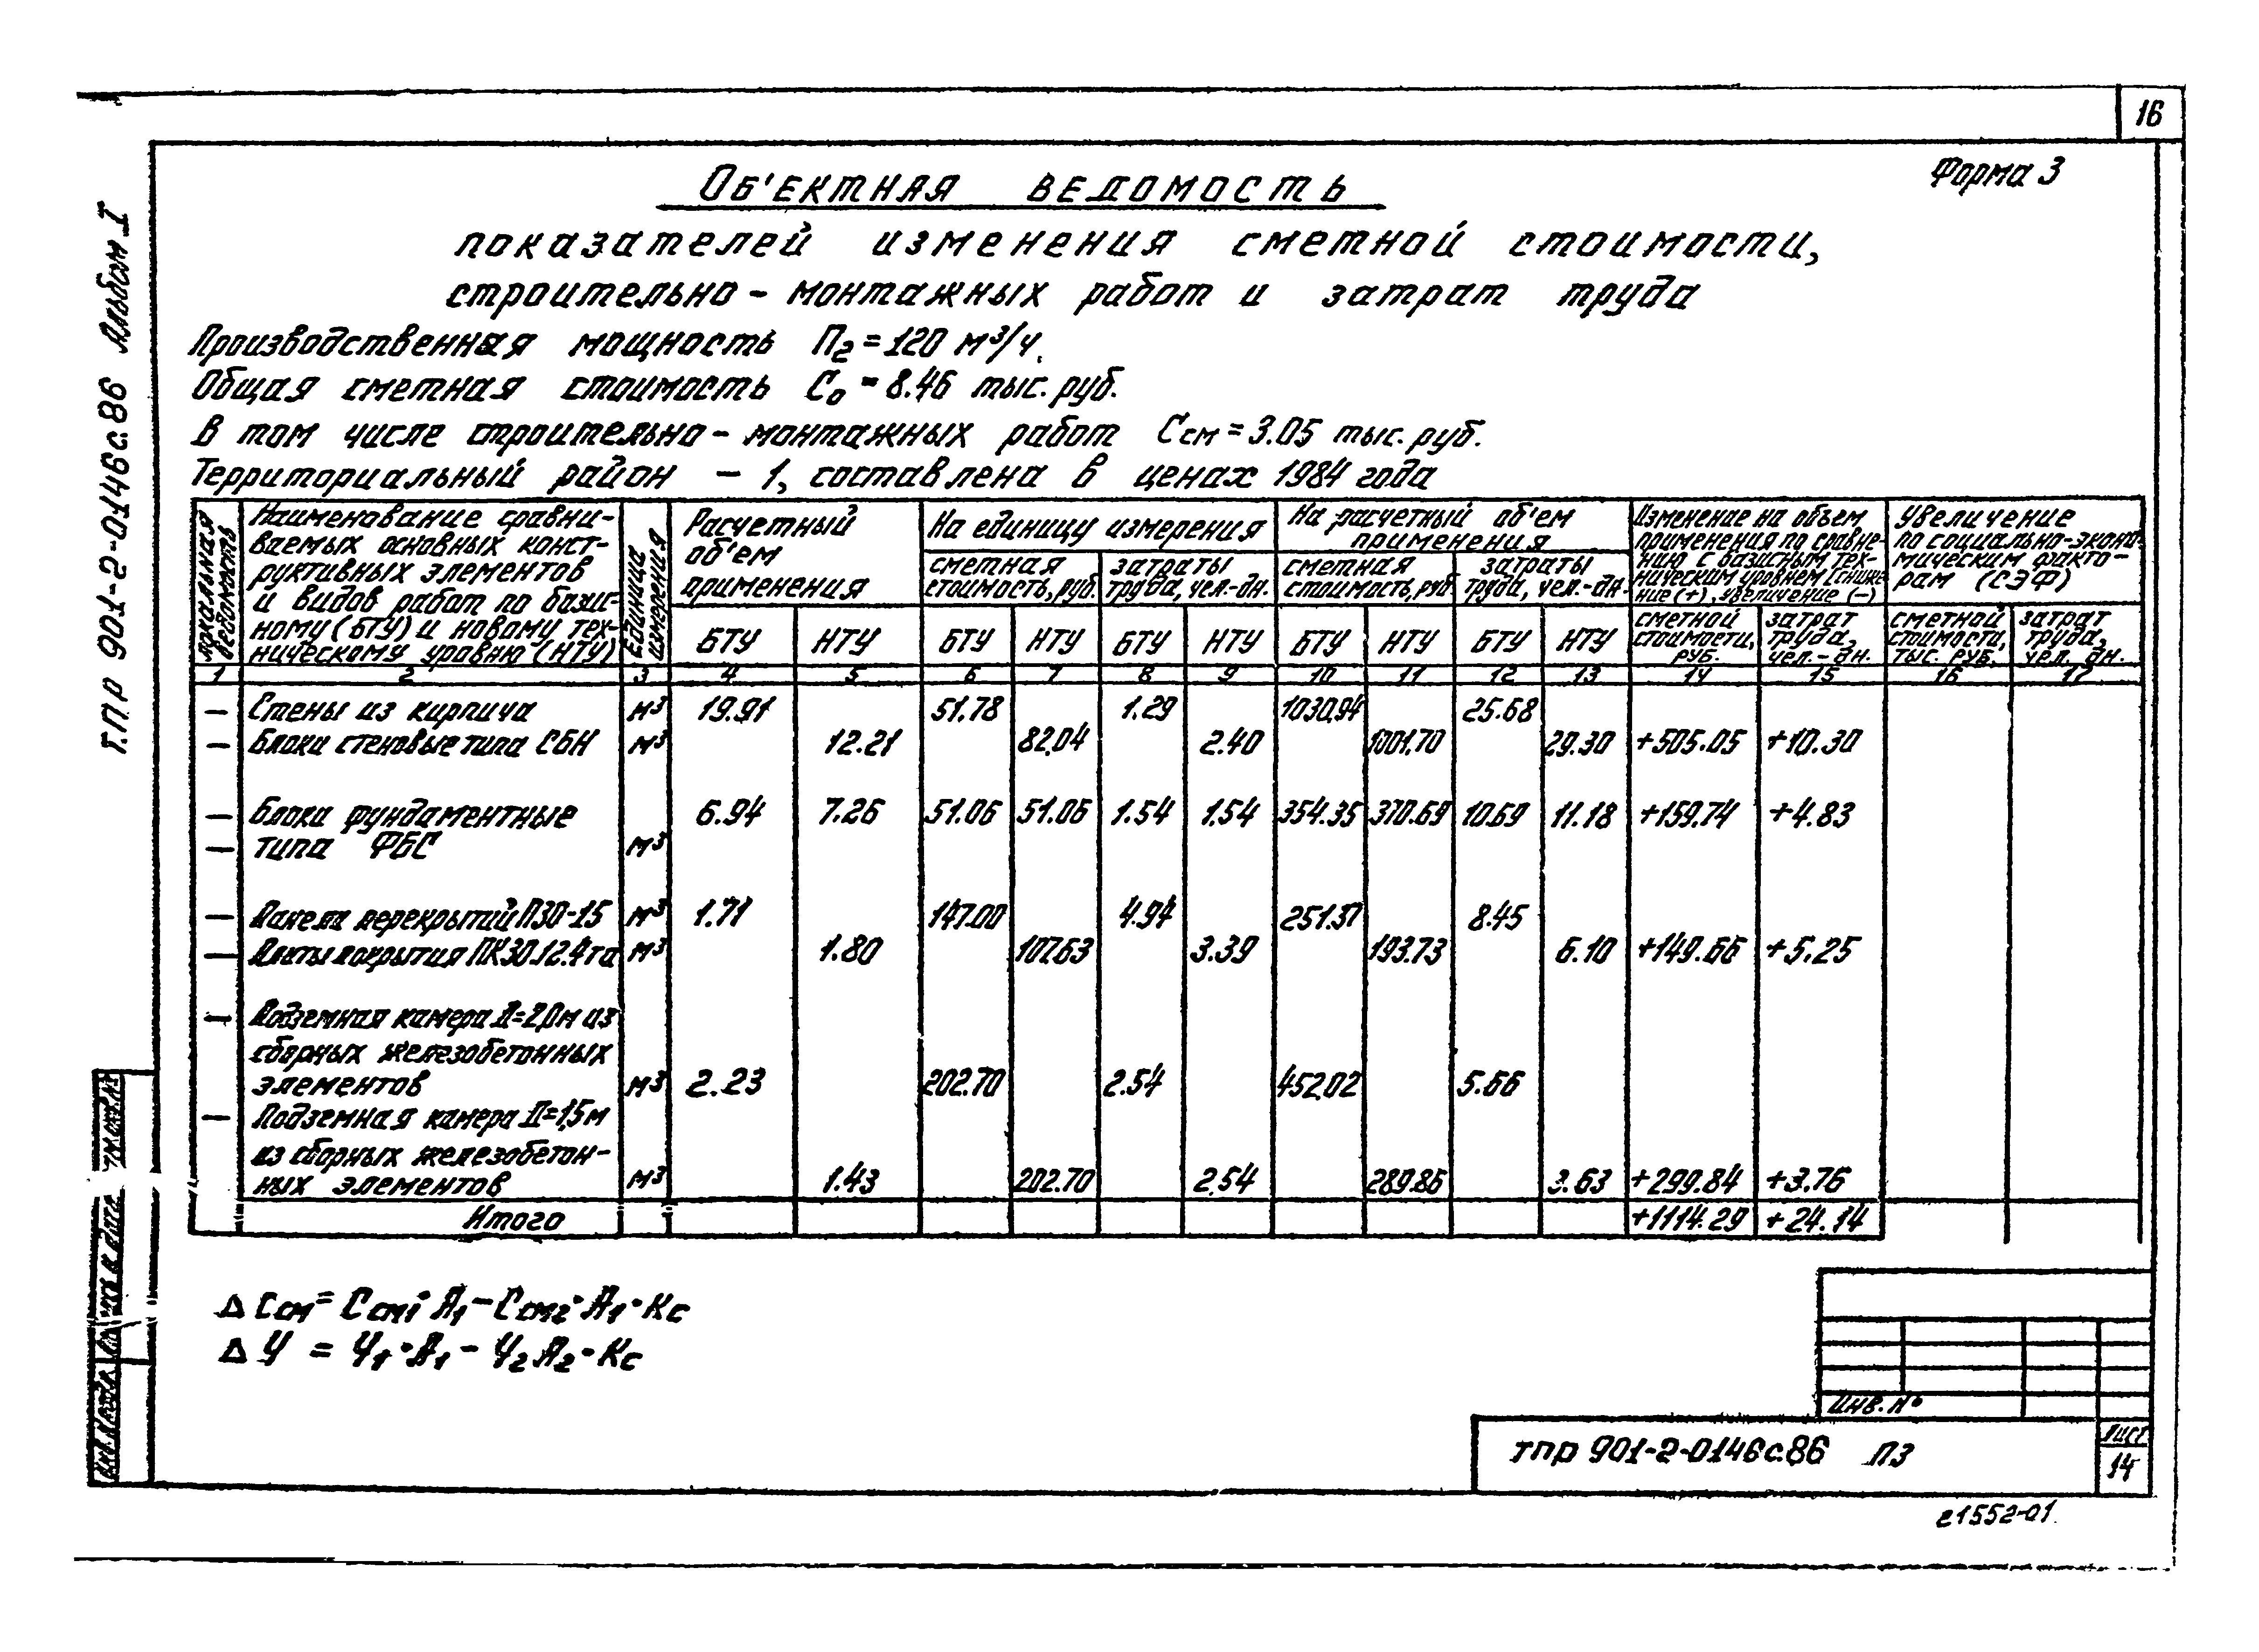 16
Форма 3
Об'ектная ведомость
показателей изменения сметной стоимости,
строительно - монтажных работ и затрат труда
Производственная мощность П2 = 120 м³/ч.
Общая сметная стоимость Со = 8.46 тыс. руб.
В том числе строительно - монтажных работ Ссм = 3.05 тыс. руб.
Территориальный район - 1, составлена в ценах 1984 года
Т.П р 901-2-0146с.86 Альбом I
Локальная ведомость
Наименование сравни-
ваемых основных конст-
руктивных элементов
и видов работ по базис-
ному (БТУ) и новому тех-
ническому уровню (НТУ)
Единица измерения
Расчетный
об'ем
применения
На единицу измерения
На расчетный об'ем
применения
Изменение на объем
применения по сравне-
нию с базисным тех-
ническим уровнем (сниже
ние (+), увеличение (-)
Увеличение
по социально-эконо-
мическим факто-
рам (СЭФ)
сметная стоимость, руб. затраты труда, чел.-дн. сметная стоимость, руб. затраты труда, чел.-дн.
БТУ НТУ БТУ НТУ БТУ НТУ БТУ НТУ БТУ НТУ
сметной стоимости, руб. затрат труда, чел.-дн. сметной стоимости, тыс. руб. затрат труда, чел. дн.
1 2 3 4 5 6 7 8 9 10 11 12 13 14 15 16 17
— Стены из кирпича м³ 19.91 51.78 1.29 1030,94 25.68
— Блоки стеновые типа СБН м³ 12.21 82,04 2.40 1001,70 29.30 +505.05 +10.30
— Блоки фундаментные 6.94 7.26 51.06 51.06 1.54 1.54 354.35 370.69 10.69 11.18 +159.74 +4.83
— типа ФБС м³
— Панели перекрытий П30-15 м³ 1.71 147.00 4.94 251.37 8.45
— Плиты покрытия ПК30.12.4та м³ 1.80 107.63 3.39 193.73 6.10 +149.66 +5.25
— Подземная камера Д=2,0м из
сборных железобетонных
элементов м³ 2.23 202.70 2.54 452,02 5.66
— Подземная камера Д=1,5м
из сборных железобетон-
ных элементов м³ 1.43 202.70 2.54 289.86 3.63 +299.84 +3.76
Итого +1114.29 +24.14
Δ Ссм = Ссм1·А1 - Ссм2·А1·Кс
Δ У = У1·А1 - У2 А2·Кс
Инв. №
тпр 901-2-0146с.86 ПЗ
Лист
14
21552-01